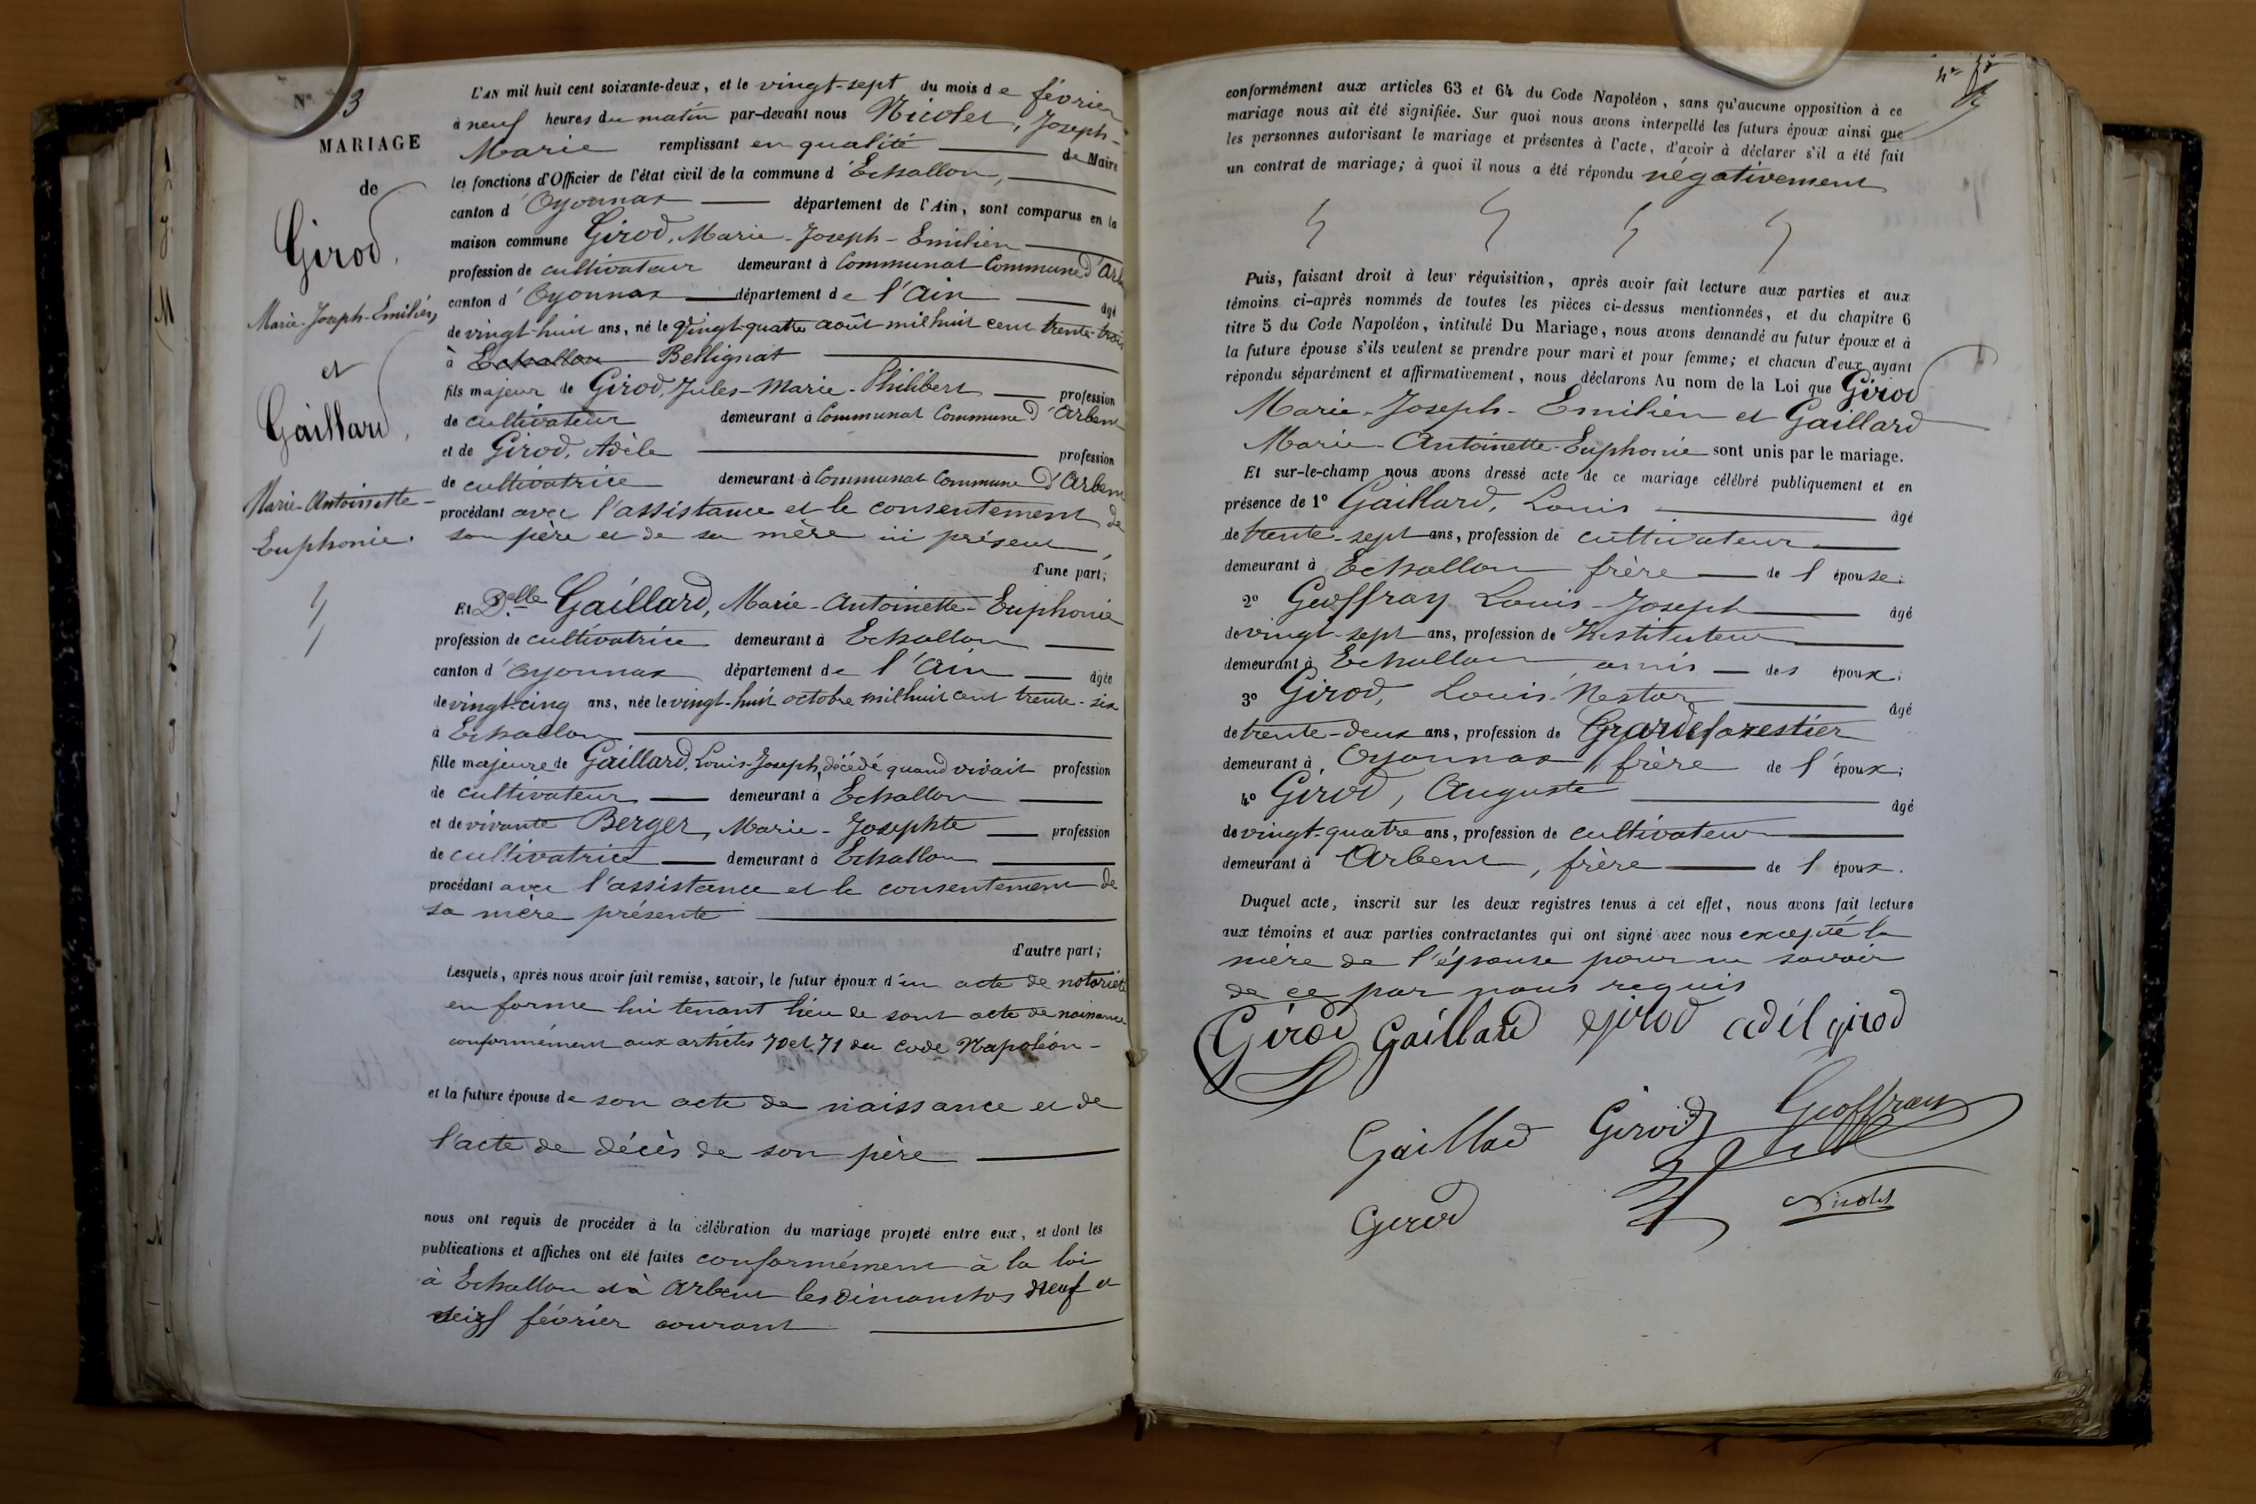 N° 3
MARIAGE
de
Girod,
Marie-Joseph-Emilien,
et
Gaillard,
Marie-Antoinette-
Euphonie.
L'AN mil huit cent soixante-deux, et le vingt-sept du mois de février
à neuf heures du matin par-devant nous Nicolet, Joseph-
Marie remplissant en qualité de Maire
les fonctions d'Officier de l'état civil de la commune d'Echallon,
canton d'Oyonnax département de l'Ain, sont comparus en la
maison commune Girod, Marie-Joseph-Emilien
profession de cultivateur demeurant à Communal Commune d'Arb
canton d'Oyonnax département de l'Ain âgé
de vingt-huit ans, né le vingt-quatre août mil huit cent trente-trois
à Echallon Bellignat
fils majeur de Girod, Jules-Marie-Philibert profession
de cultivateur demeurant à Communal Commune d'Arbent
et de Girod, Adèle profession
de cultivatrice demeurant à Communal Commune d'Arbent
procédant avec l'assistance et le consentement de
son père et de sa mère ici présent,
d'une part;
Et Delle Gaillard, Marie-Antoinette-Euphonie
profession de cultivatrice demeurant à Echallon
canton d'Oyonnax département de l'Ain âgée
de vingt-cinq ans, née le vingt-huit octobre mil huit cent trente-six
à Echallon
fille majeure de Gaillard, Louis-Joseph, décédé quand vivait profession
de cultivateur demeurant à Echallon
et de vivante Berger, Marie-Josephte profession
de cultivatrice demeurant à Echallon
procédant avec l'assistance et le consentement de
sa mère présente
d'autre part;
Lesquels, après nous avoir fait remise, savoir, le futur époux d'un acte de notoriété
en forme lui tenant lieu de sont acte de naissance
conformément aux articles 70 et 71 du Code Napoléon-
et la future épouse de son acte de naissance et de
l'acte de décès de son père
nous ont requis de procéder à la célébration du mariage projeté entre eux, et dont les
publications et affiches ont été faites conformément à la loi
à Echallon et à Arbent les dimanches neuf et
seize février courant
conformément aux articles 63 et 64 du Code Napoléon, sans qu'aucune opposition à ce
mariage nous ait été signifiée. Sur quoi nous avons interpellé les futurs époux ainsi que
les personnes autorisant le mariage et présentes à l'acte, d'avoir à déclarer s'il a été fait
un contrat de mariage; à quoi il nous a été répondu négativement
Puis, faisant droit à leur réquisition, après avoir fait lecture aux parties et aux
témoins ci-après nommés de toutes les pièces ci-dessus mentionnées, et du chapitre 6
titre 5 du Code Napoléon, intitulé Du Mariage, nous avons demandé au futur époux et à
la future épouse s'ils veulent se prendre pour mari et pour femme; et chacun d'eux ayant
répondu séparément et affirmativement, nous déclarons Au nom de la Loi que Girod
Marie-Joseph-Emilien et Gaillard
Marie-Antoinette-Euphonie sont unis par le mariage.
Et sur-le-champ nous avons dressé acte de ce mariage célébré publiquement et en
présence de 1° Gaillard, Louis âgé
de trente-sept ans, profession de cultivateur
demeurant à Echallon frère de l'épouse;
2° Geoffray Louis-Joseph âgé
de vingt-sept ans, profession de Instituteur
demeurant à Echallon amis des époux;
3° Girod, Louis-Nestor âgé
de trente-deux ans, profession de Garde forestier
demeurant à Oyonnax frère de l'époux;
4° Girod, Auguste âgé
de vingt-quatre ans, profession de cultivateur
demeurant à Arbent, frère de l'époux.
Duquel acte, inscrit sur les deux registres tenus à cet effet, nous avons fait lecture
aux témoins et aux parties contractantes qui ont signé avec nous excepté la
mère de l'épouse pour ne savoir
de ce par nous requis
Girod Gaillard girod adèl girod
Gaillad Girod Geoffray
Girod Nicolet